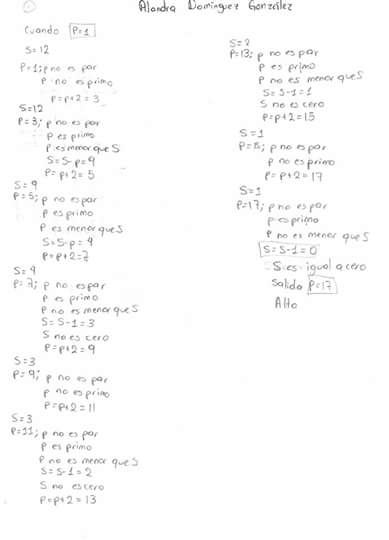 Alondra Dominguez González
Cuando P=1
S=12
P=1; p no es par
P no es primo
P=p+2=3
S=12
P=3; p no es par
P es primo
P es menor que S
S=S-p=9
P=p+2=5
S=9
P=5; p no es par
P es primo
P es menor que S
S=S-p=4
P=p+2=7
S=4
P=7; p no es par
P es primo
P no es menor que S
S=S-1=3
S no es cero
P=p+2=9
S=3
P=9; p no es par
p no es primo
P=p+2=11
S=3
P=11; p no es par
P es primo
P no es menor que S
S=S-1=2
S no es cero
P=p+2=13
S=2
P=13; p no es par
P es primo
P no es menor que S
S=S-1=1
S no es cero
P=p+2=15
S=1
P=15; p no es par
P no es primo
P=p+2=17
S=1
P=17; p no es par
p es primo
P no es menor que S
S=S-1=0
S es igual a cero
Salida P=17
Alto